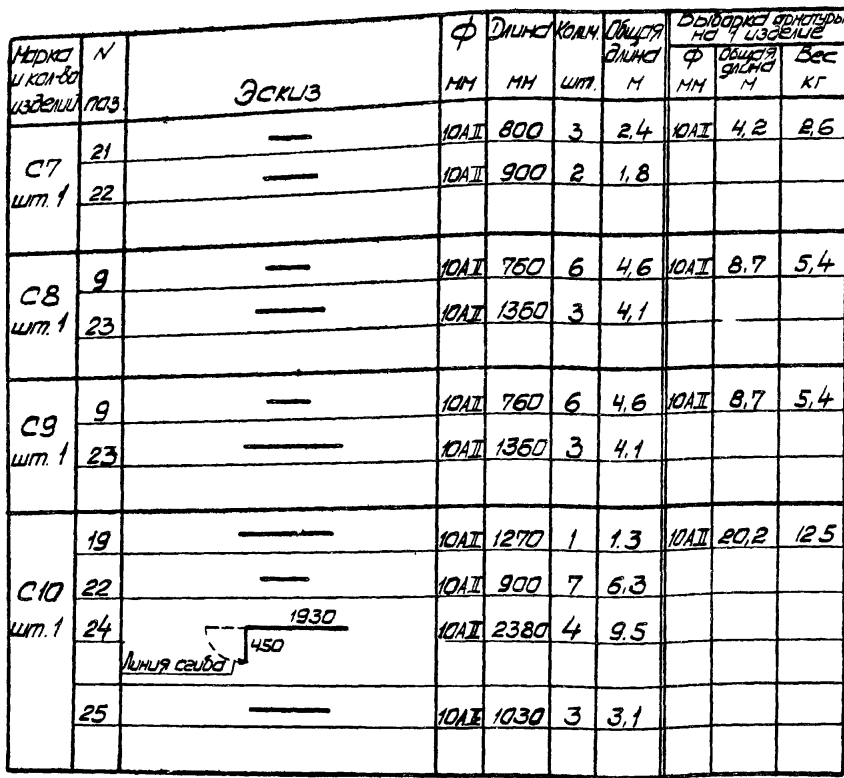 Марка и кол-во изделий N поз. Эскиз Ф мм Длина мм Колич. шт. Общая длина м Выборка арматуры на 1 изделие Ф мм Общая длина м Вес кг
С7 шт. 1
21 10АII 800 3 2,4 10АII 4,2 2,6
22 10АII 900 2 1,8
С8 шт. 1
9 10АII 760 6 4,6 10АII 8,7 5,4
23 10АII 1360 3 4,1
С9 шт. 1
9 10АII 760 6 4,6 10АII 8,7 5,4
23 10АII 1360 3 4,1
С10 шт. 1
19 10АII 1270 1 1.3 10АII 20,2 12.5
22 10АII 900 7 6,3
24 1930 450 Линия сгиба 10АII 2380 4 9.5
25 10АII 1030 3 3,1